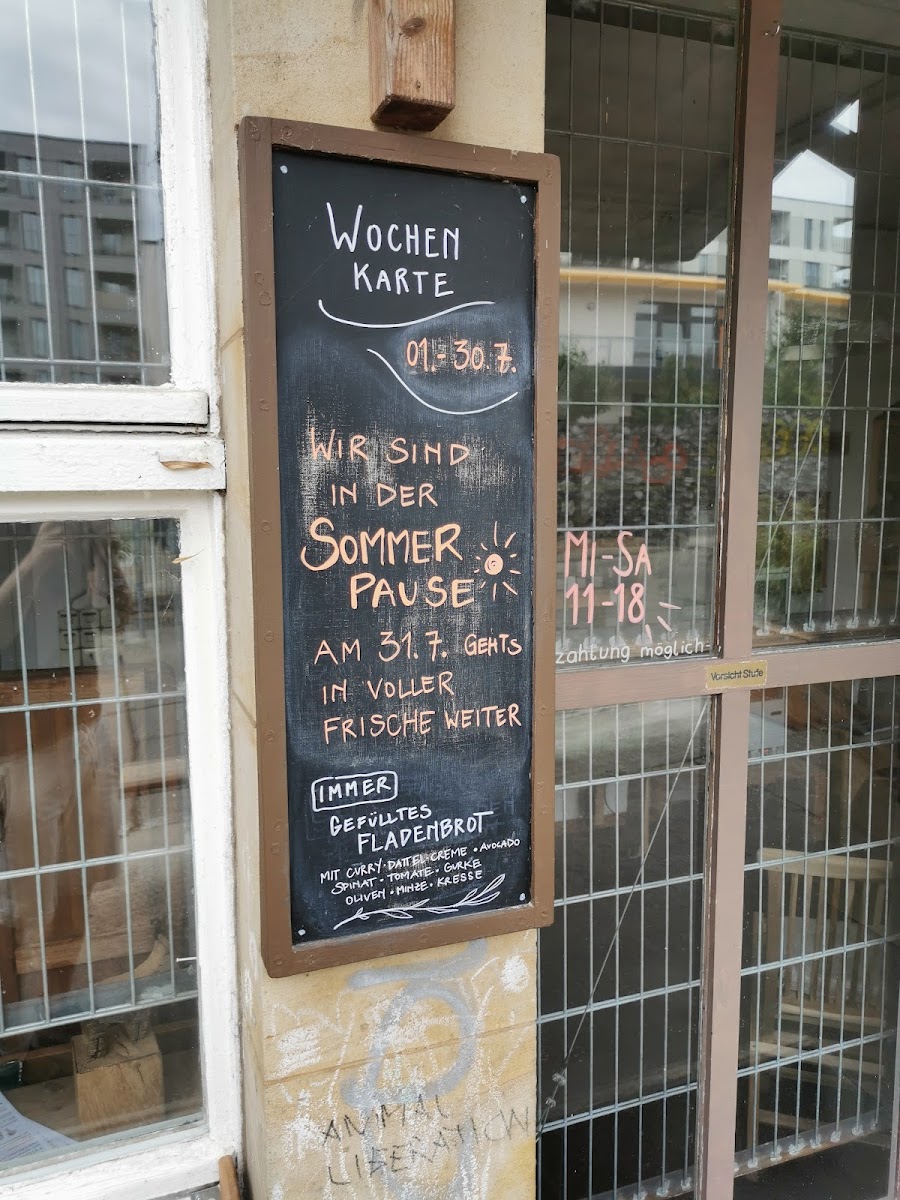 WOCHEN
KARTE
01.-30.7.
WIR SIND
IN DER
SOMMER
PAUSE
AM 31.7. GEHTS
IN VOLLER
FRISCHE WEITER
IMMER
GEFÜLLTES
FLADENBROT
MIT CURRY-DATTEL-CREME • AVOCADO
SPINAT - TOMATE • GURKE
OLIVEN • MINZE • KRESSE
MI-SA
11-18
zahlung möglich-
Vorsicht Stufe
ANIMAL
LIBERATION